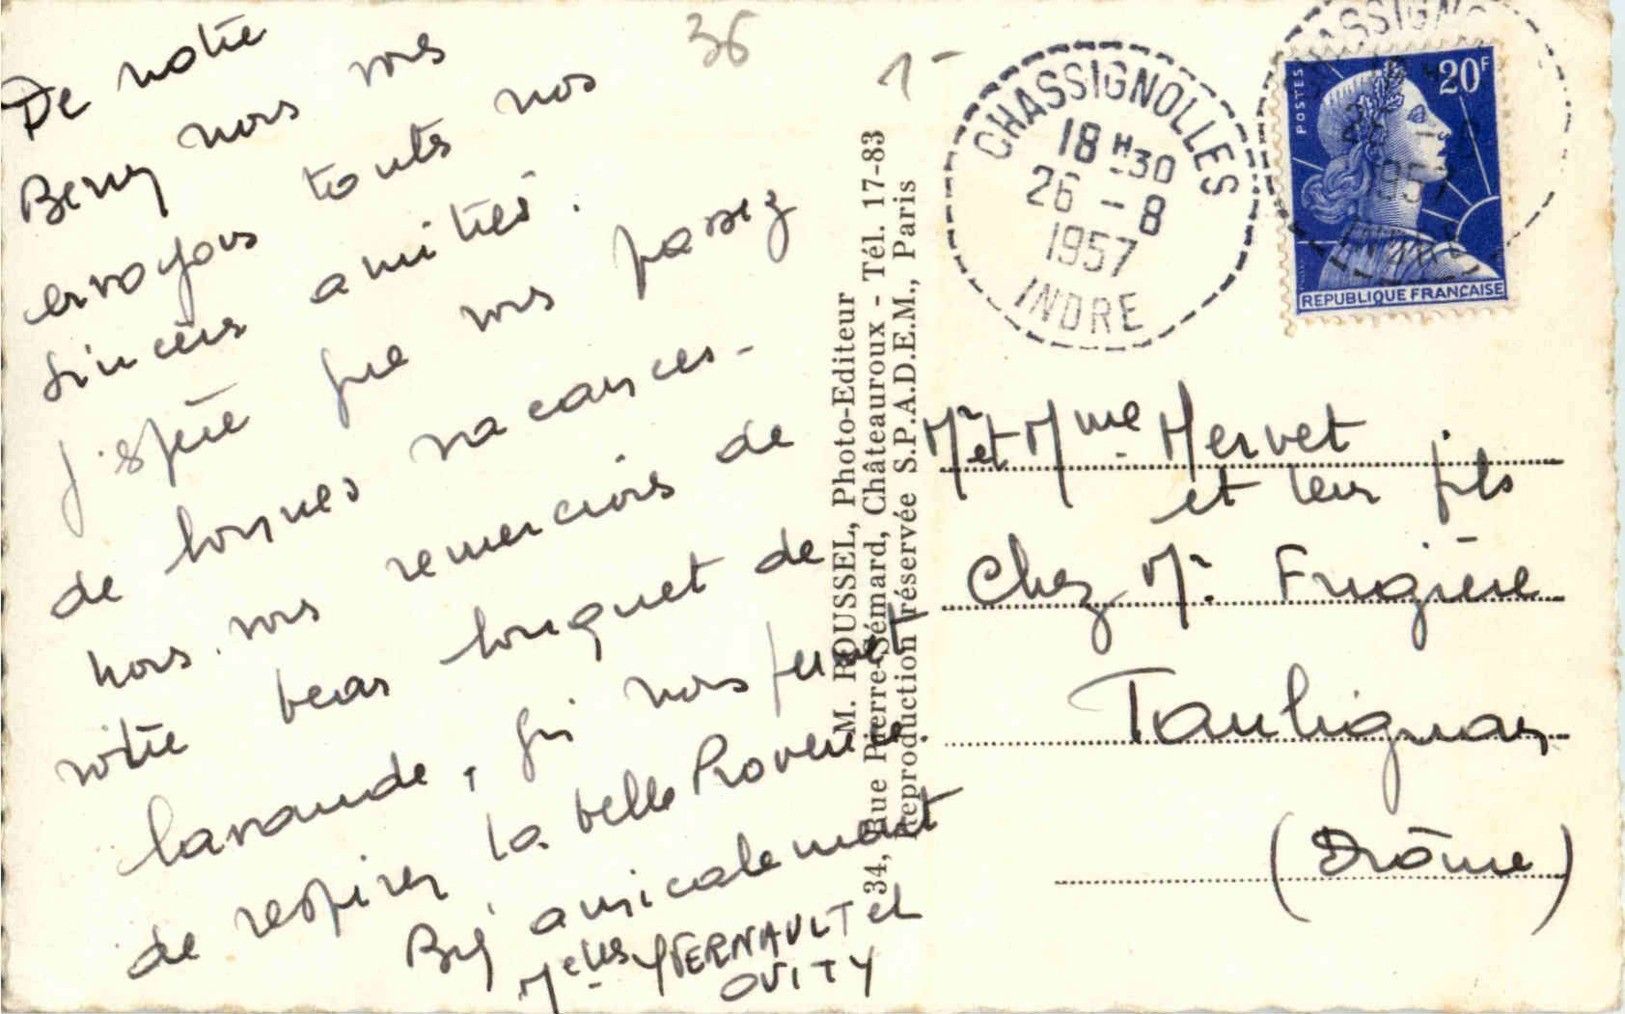 De notre
Berry nous vous
envoyons toutes nos
sincères amitiés.
J'espère que vous passez
de bonnes vacances -
nous vous remercions de
votre beau bouquet de
lavande, qui nous permet
de respirer la belle Provence.
Bien amicalement
Melles YVERNAULT et
OVITY
36
1-
M. ROUSSEL, Photo-Editeur
34, Rue Pierre-Sémard, Châteauroux - Tél. 17-83
Reproduction réservée S.P.A.D.E.M., Paris
CHASSIGNOLLES
18 H 30
26 - 8
1957
INDRE
CHASSIGNOLLES
1957
INDRE
POSTES
20F
REPUBLIQUE FRANÇAISE
Mr et Mme Hervet
et leur fils
Chez Mr. Frugière
Taulignan
(Drôme)